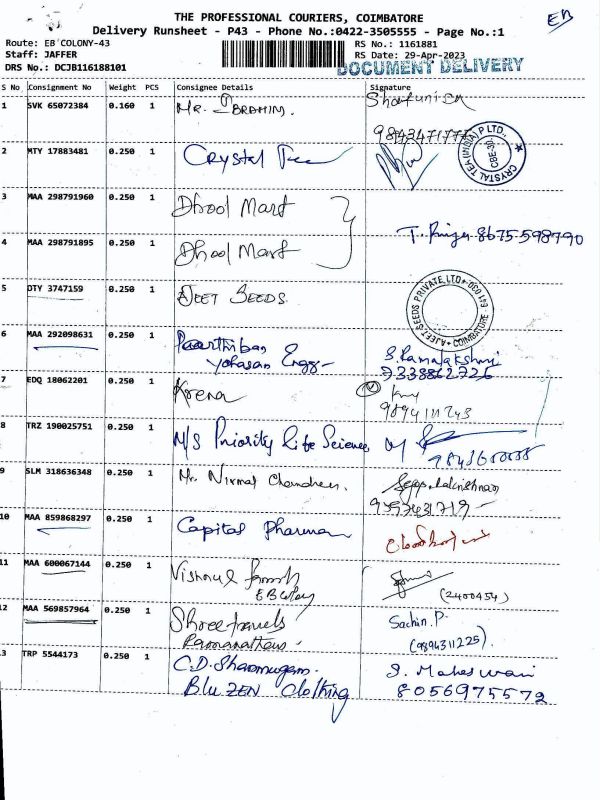 EB
THE PROFESSIONAL COURIERS, COIMBATORE
Delivery Runsheet - P43 - Phone No.:0422-3505555 - Page No.:1
Route: EB COLONY-43
RS No.: 1161881
Staff: JAFFER
RS Date: 29-Apr-2023
DRS No.: DCJB116188101
DOCUMENT DELIVERY
S No Consignment No Weight PCS Consignee Details Signature
1 SVK 65072384 0.160 1 MR. IBRAHIM.
2 MTY 17883481 0.250 1 Crystal Tea
CRYSTAL TEA (INDIA) P LTD. CBE-30.
3 MAA 298791960 0.250 1 Dhool Mart
8675598790
4 MAA 298791895 0.250 1 Dhool Mart
5 DTY 3747159 0.250 1 AJEET SEEDS
AJEET SEEDS PRIVATE LTD COIMBATORE
6 MAA 292098631 0.250 1 Paarthiban S. Ramalakshmi
Yohasan Engg- 7338862726
7 EDQ 18062201 0.250 1 Krena
9894111243
8 TRZ 190025751 0.250 1 M/S Priority Life Sciences
9 SLM 318636348 0.250 1 Mr. Nirmal Chandren.
10 MAA 859868297 0.250 1 Capital Pharma
11 MAA 600067144 0.250 1
EB Colony (2400454)
12 MAA 569857964 0.250 1 Shree travels Sachin.P
Ramanathan. (9894311225).
13 TRP 5544173 0.250 1 C.D. Shanmugam. S. Maheswari
Blu ZEN Clothing 8056975572